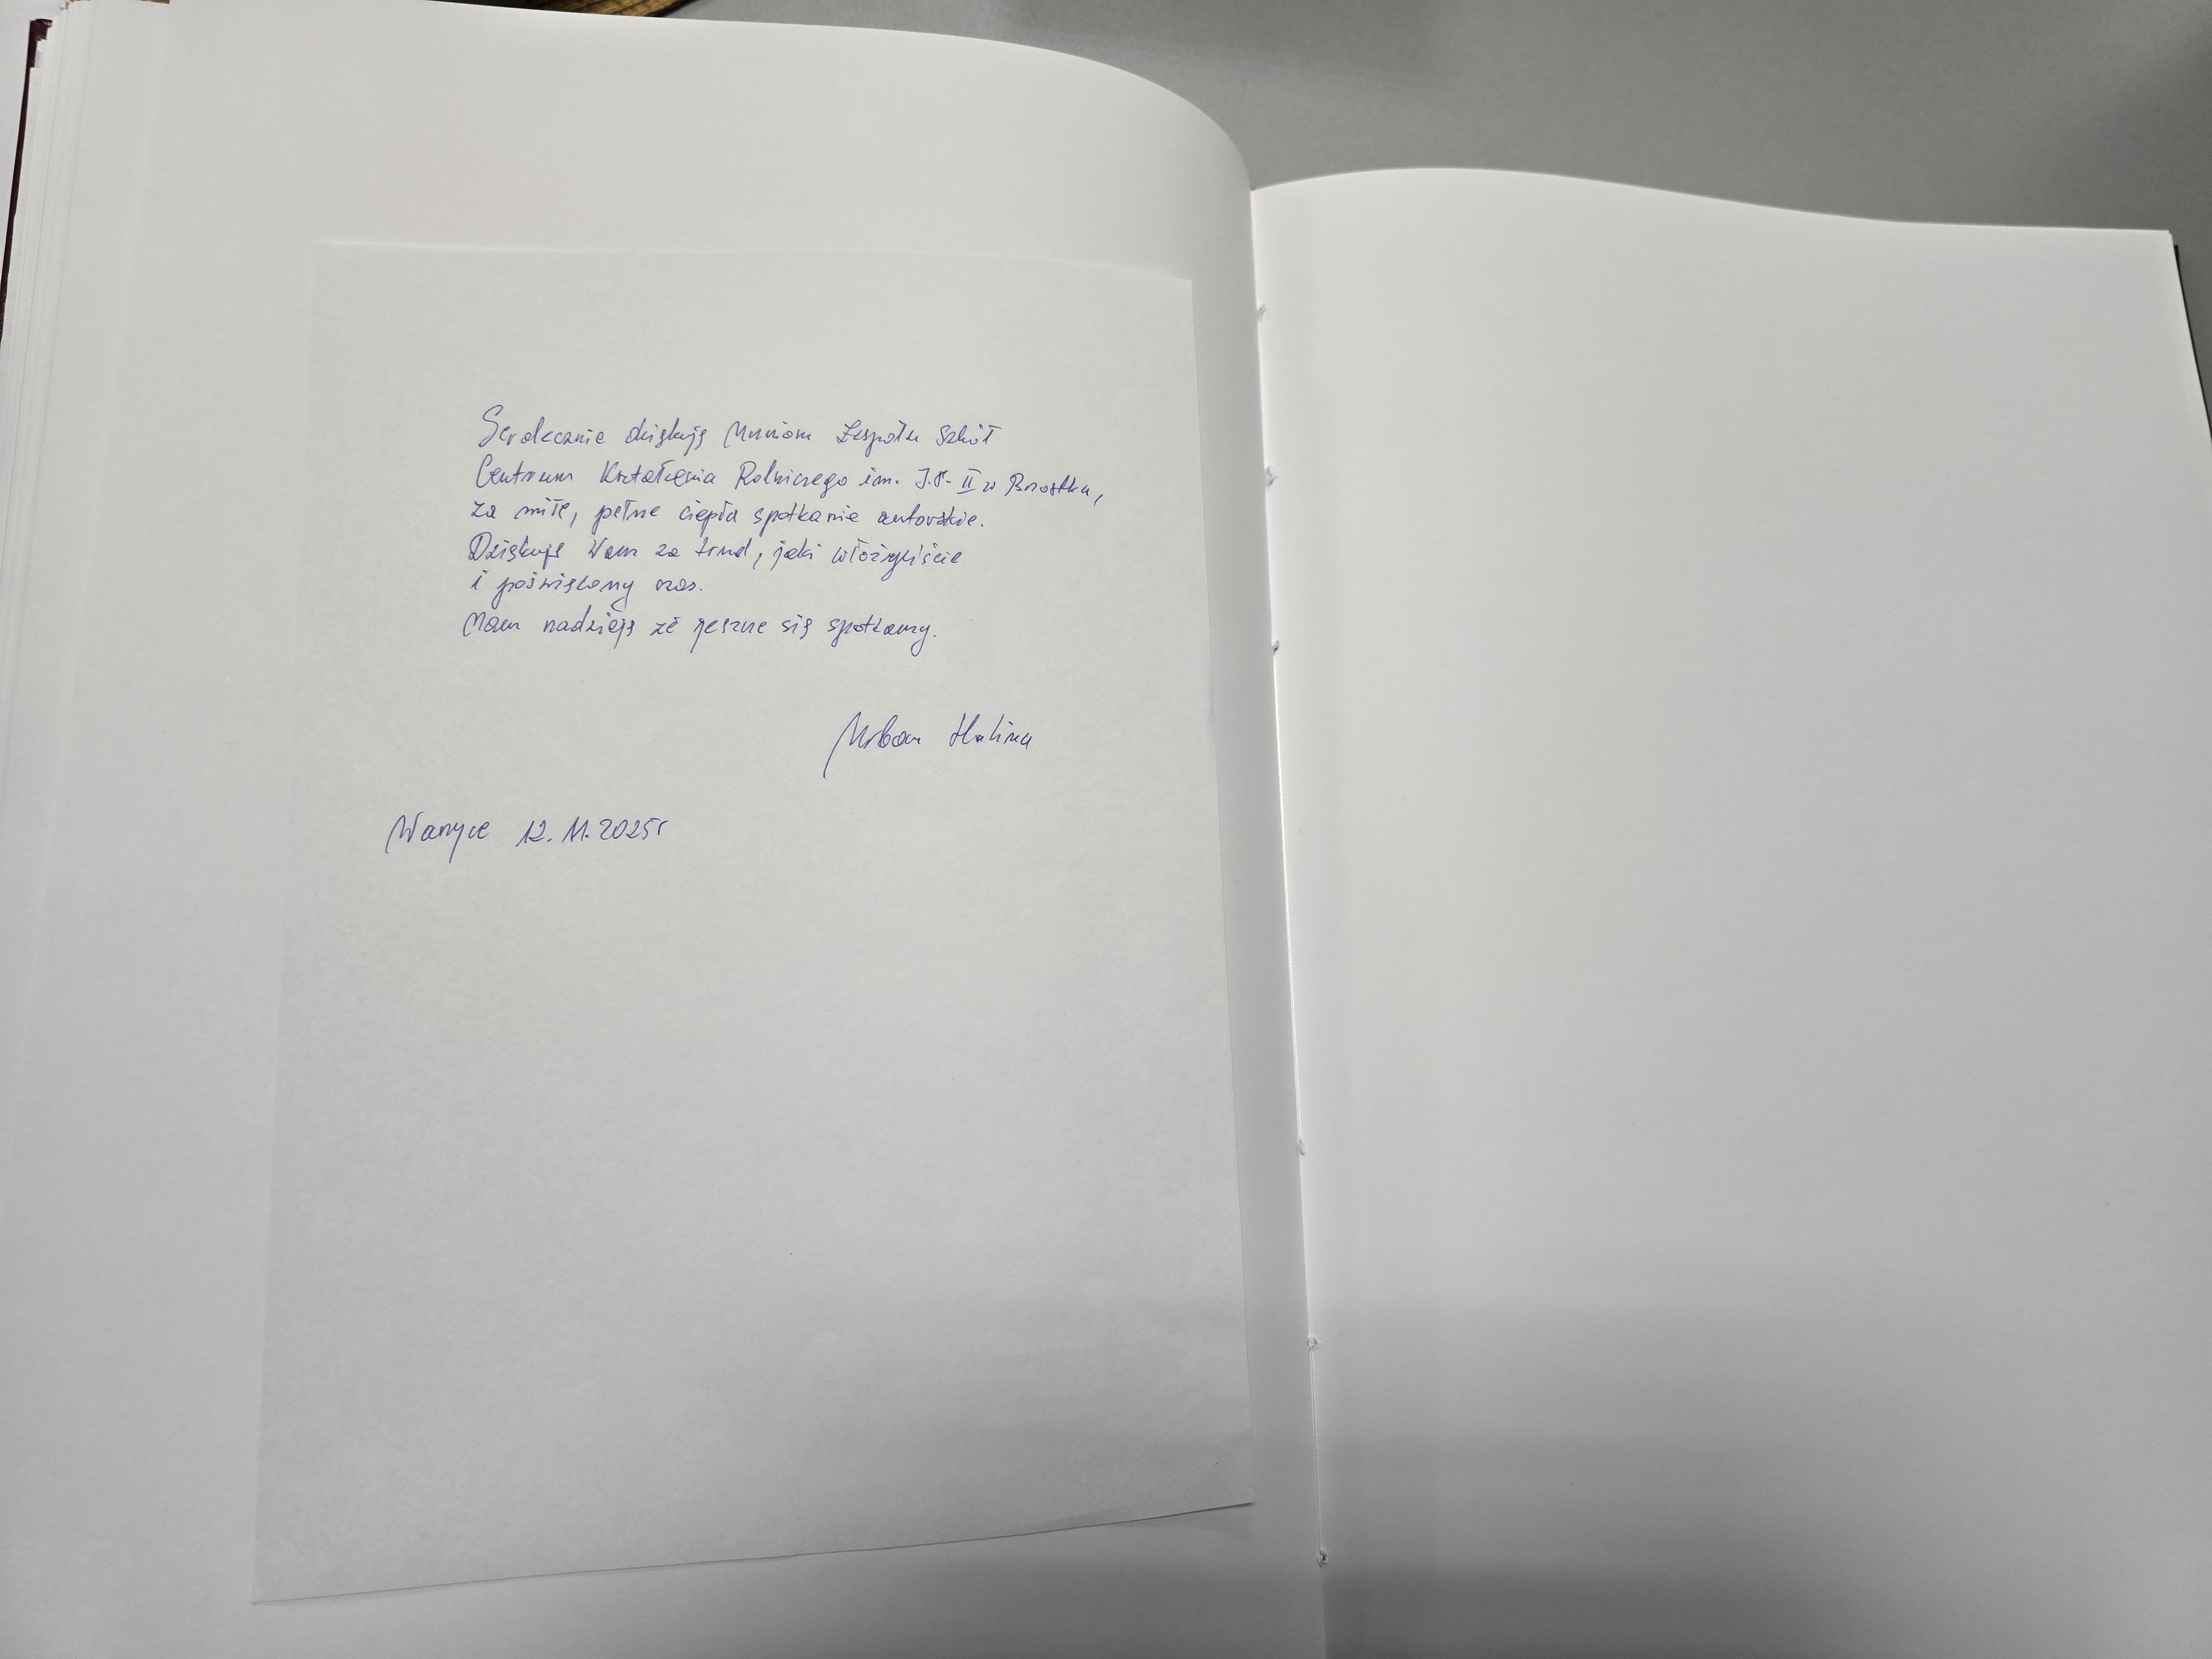 Serdecznie dziękuję Uczniom Zespołu Szkół
Centrum Kształcenia Rolniczego im. J.P. II w Brzostku,
za miłe, pełne ciepła spotkanie autorskie.
Dziękuję Wam za trud, jaki włożyliście
i poświęcony czas.
Mam nadzieję że jeszcze się spotkamy.
Urban Halina
12.11.2025r